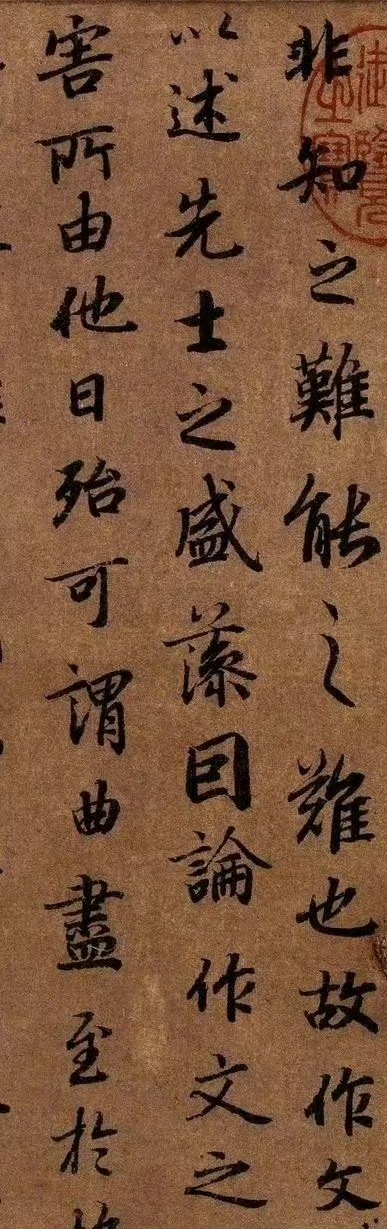 非知之難能之難也故作文
以述先士之盛藻因論作文之
害所由他日殆可謂曲盡至於